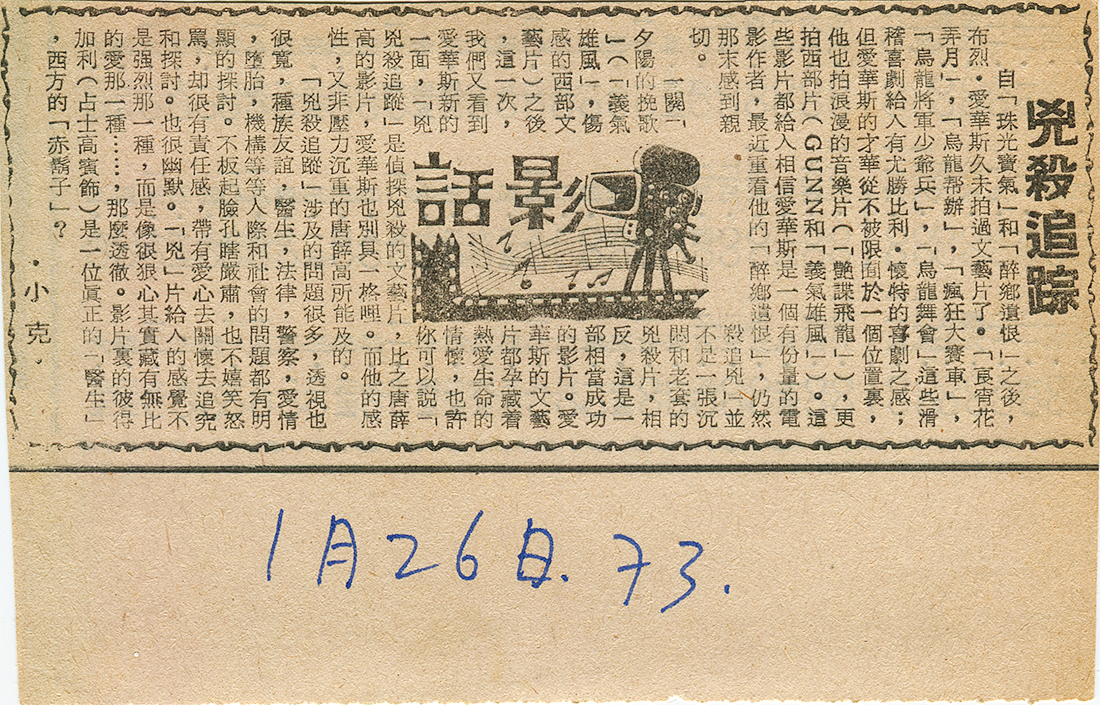 兇殺追踪
自「珠光寶氣」和「醉鄉遺恨」之後，
布烈．愛華斯久未拍過文藝片了。「良宵花
弄月」，「烏龍帮辦」，「瘋狂大賽車」，
「烏龍將軍少爺兵」，「烏龍舞會」這些滑
稽喜劇給人有尤勝比利．懷特的喜劇之感；
但愛華斯的才華從不被限囿於一個位置裏，
他也拍浪漫的音樂片（「艷諜飛龍」），更
拍西部片（GUNN和「義氣雄風」）。這
些影片都給人相信愛華斯是一個有份量的電
影作者，最近重看他的「醉鄉遺恨」，仍然
那末感到親
切。
一關「
夕陽的挽歌
」（「義氣
雄風」，傷
感的西部文
藝片）之後
，這一次，
我們又看到
愛華斯新的
一面，「兇
影話
殺追兇」並
不是一張沉
悶和老套的
兇殺片，相
反，這是一
部相當成功
的影片。愛
華斯的文藝
片都孕藏着
熱愛生命的
情懷，也許
你可以說「
兇殺追蹤」是偵探兇殺的文藝片，比之唐薛
高的影片，愛華斯也別具一格哩。而他的感
性，又非壓力沉重的唐薛高所能及的。
「兇殺追蹤」涉及的問題很多，透視也
很寬，種族友誼，醫生，法律，警察，愛情
，墮胎，機構等等人際和社會的問題都有明
顯的探討。不板起臉孔瞎嚴肅，也不嬉笑怒
罵，却很有責任感，帶有愛心去關懷去追究
和探討。也很幽默。「兇」片給人的感覺不
是強烈那一種，而是像很狠心其實藏有無比
的愛那一種……，那麼透徹。影片裏的彼得
加利（占士高賓飾）是一位眞正的「醫生」
，西方的「赤鬍子」？
．小克．
1月26日.73.